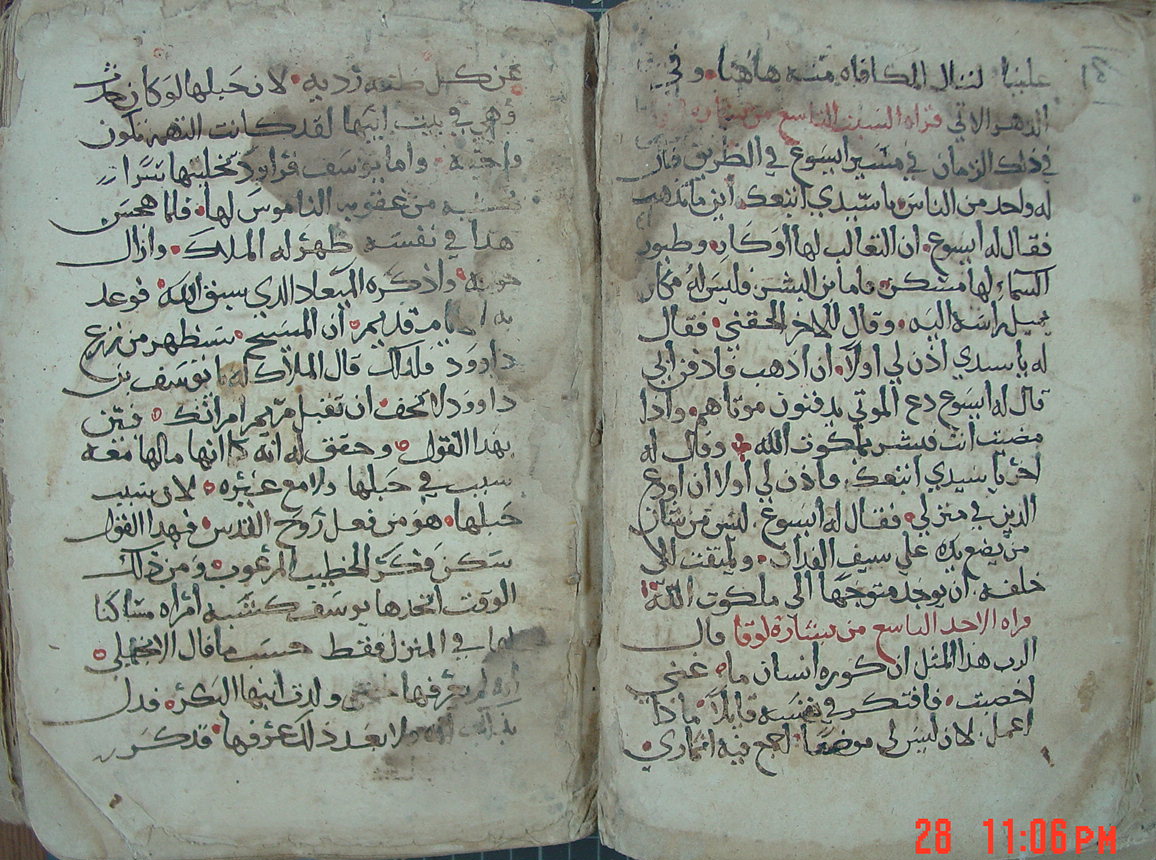 علينا لننال المكافاه منه هاهنا. وفي
الدهر الاتي قراه السبت التاسع من بشاره
في ذلك الزمان في مسير ايسوع في الطريق قال
له واحد من الناس يا سيدي اتبعك اين ما تذهب
فقال له ايسوع. ان الثعالب لها اوكار. وطيور
السماء لها مسكن. فاما ابن البشر فليس له مكان
يميل راسه اليه. وقال للاخر الحقني. فقال
له يا سيدي اذن لي اولا. ان اذهب فادفن ابي
قال له ايسوع دع الموتي يدفنون موتاهم. واذا
مضيت انت فبشر بملكوت الله. وقال له
اخر يا سيدي اتبعك. فاذن لي اولا ان اودع
الذين في منزلي. فقال له ايسوع. ليس من شان
من يضع يده علي سيف الفدان. ويلتفت الى
خلفه. ان يوجد متوجها الى ملكوت الله
قراه الاحد التاسع من بشارة لوقا قال
الرب هذا المثل ان كوره انسان ما. غني
اخصبت. فافتكر في نفسه قايلا. ماذا
اعمل. لان ليس لي موضعا. اجمع فيه اثماري.
عن كل رديه. لان حبلها لو كان
وهي في بيت ابيها لقد كانت التهمه تكون
واجبه. واما يوسف فراود تخليتها سرا
من عقوبه الناموس لها. فلما هجس
هذا في نفسه ظهر له الملاك. وازال
خوفه. واذكره الميعاد الذي سبق الله. فوعد
به قديم. ان المسيح. سيظهر من زرع
داوود فلذلك قال الملاك له يا يوسف بن
داوود لا تخف ان تقبل مريم امراتك.
بهذا القول. وحقق له انه كما انها ما لها معه
سبب في حبلها ولا مع غيره. لان سبب
حبلها. هو من فعل روح القدس. فهذا القول
سكن فكر الخطيب المرعوب. ومن ذلك
الوقت اتخذها يوسف كشبه امراه مساكنا
لها في المنزل فقط حسب ما قال الانجيلي.
انه لم يعرفها حتي ولدت ابنها البكر. فدل
بذلك انه ولا بعد ذلك عرفها. فذكر